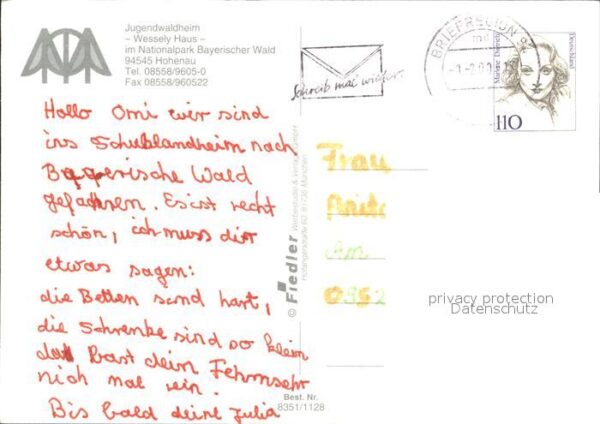 Jugendwaldheim
- Wessely Haus -
im Nationalpark Bayerischer Wald
94545 Hohenau
Tel. 08558/9605-0
Fax 08558/960522
Hallo Omi wir sind
ins Schullandheim nach
Bayerische Wald
gefahren. Es ist recht
schön, ich muss dir
etwas sagen:
die Betten sind hart,
die Schrenke sind so klein
da bast dein Fehrnsehr
nich mal rein.
Bis bald deine Julia
© Fiedler Werbestudio & Verlag
81736 München
Best. Nr.
8351/1128
Schreib mal wieder.
BRIEFREGION
mit
110
Marlene Dietrich
Deutschland
Frau
Anita
Am
privacy protection
Datenschutz